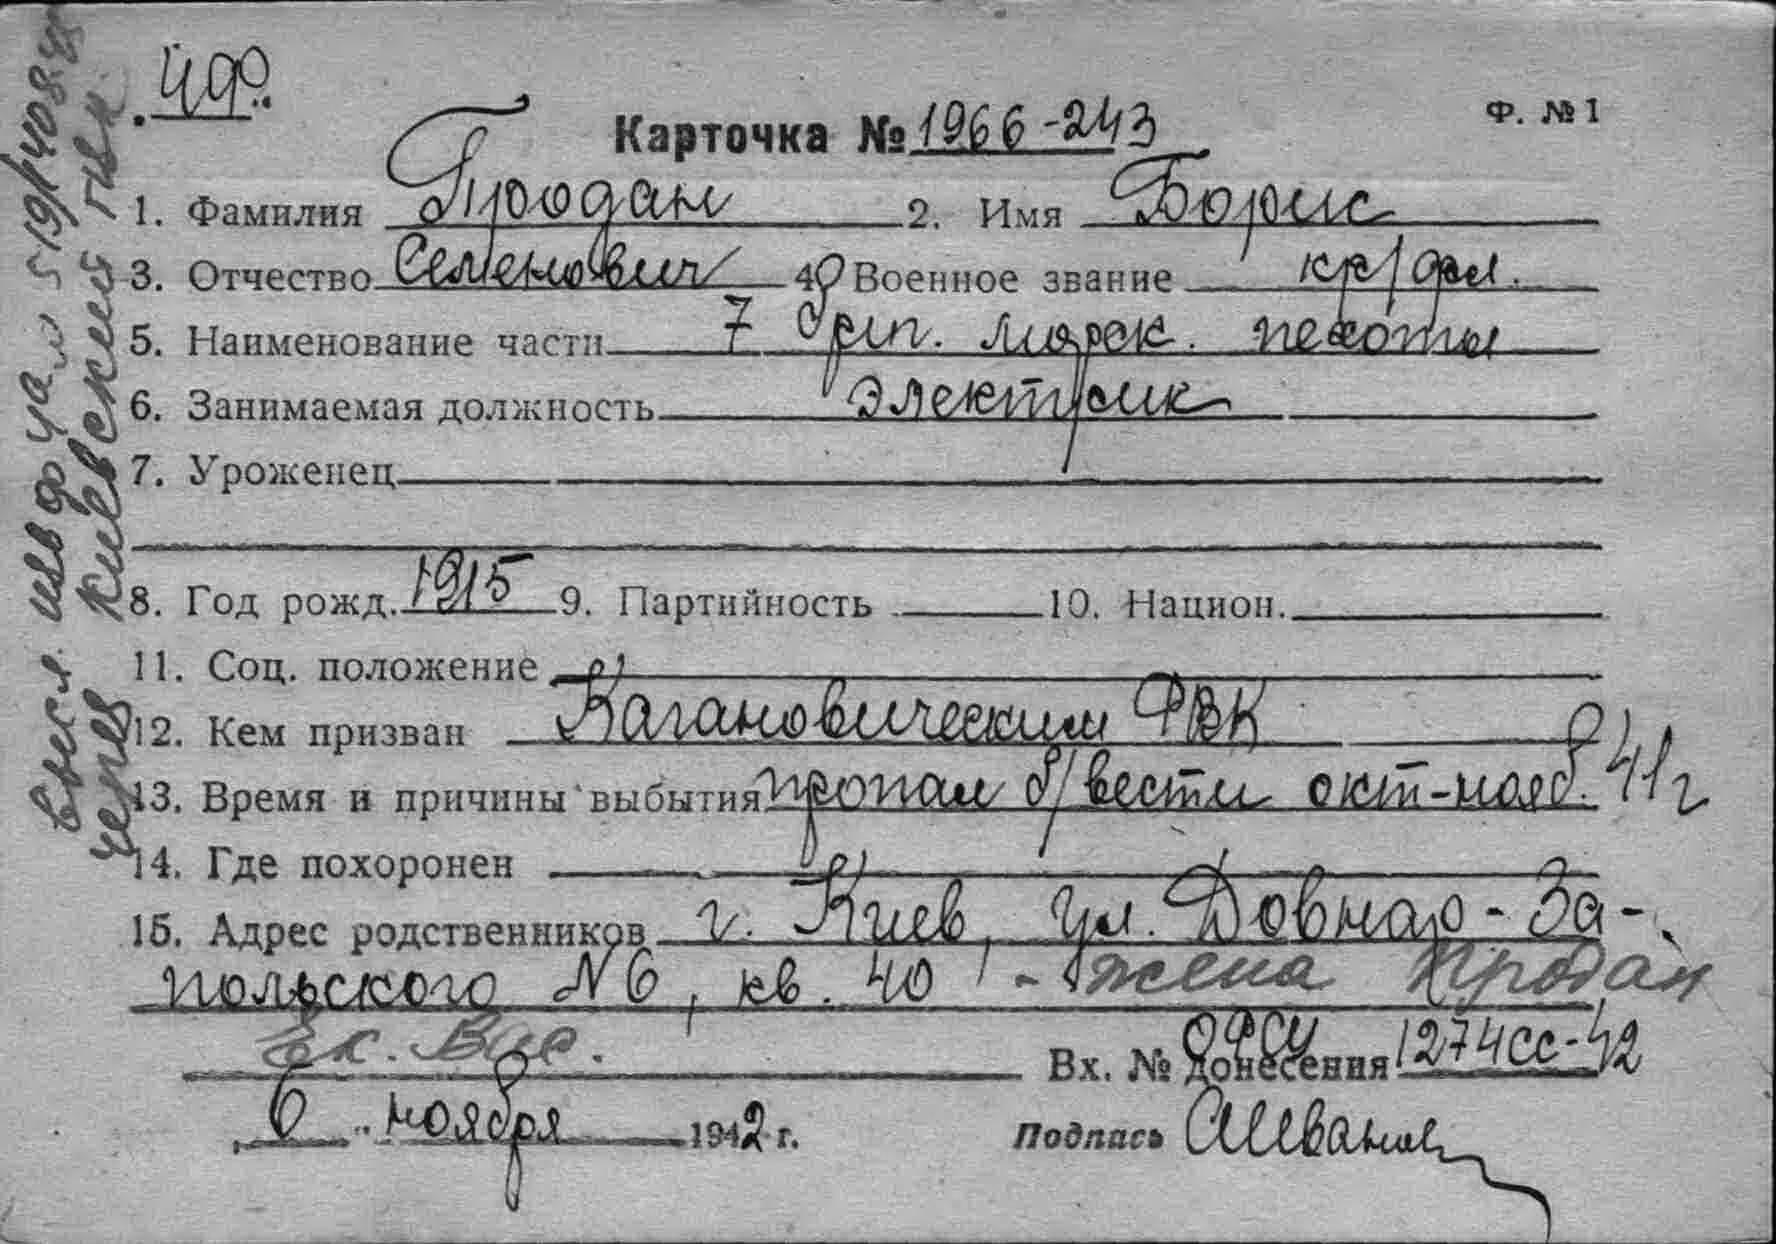 ЧФ
Карточка № 1966-243
Ф. № 1
1. Фамилия Продан 2. Имя Борис
3. Отчество Семенович 4. Военное звание кр/фл.
5. Наименование части 7 бриг. морск. пехоты
6. Занимаемая должность электрик
7. Уроженец
8. Год рожд. 1915 9. Партийность 10. Национ.
11. Соц. положение
12. Кем призван Кагановическим РВК
13. Время и причины выбытия пропал б/вести окт-нояб. 41 г
14. Где похоронен
15. Адрес родственников г. Киев, ул. Довнар-За-
польского № 6, кв. 40 - жена Продан
Ек. Вас.
Вх. № донесения ОФСУ 1274сс-42
6 ноября 1942 г.
Подпись
высл. изв
через Киевский ГВК